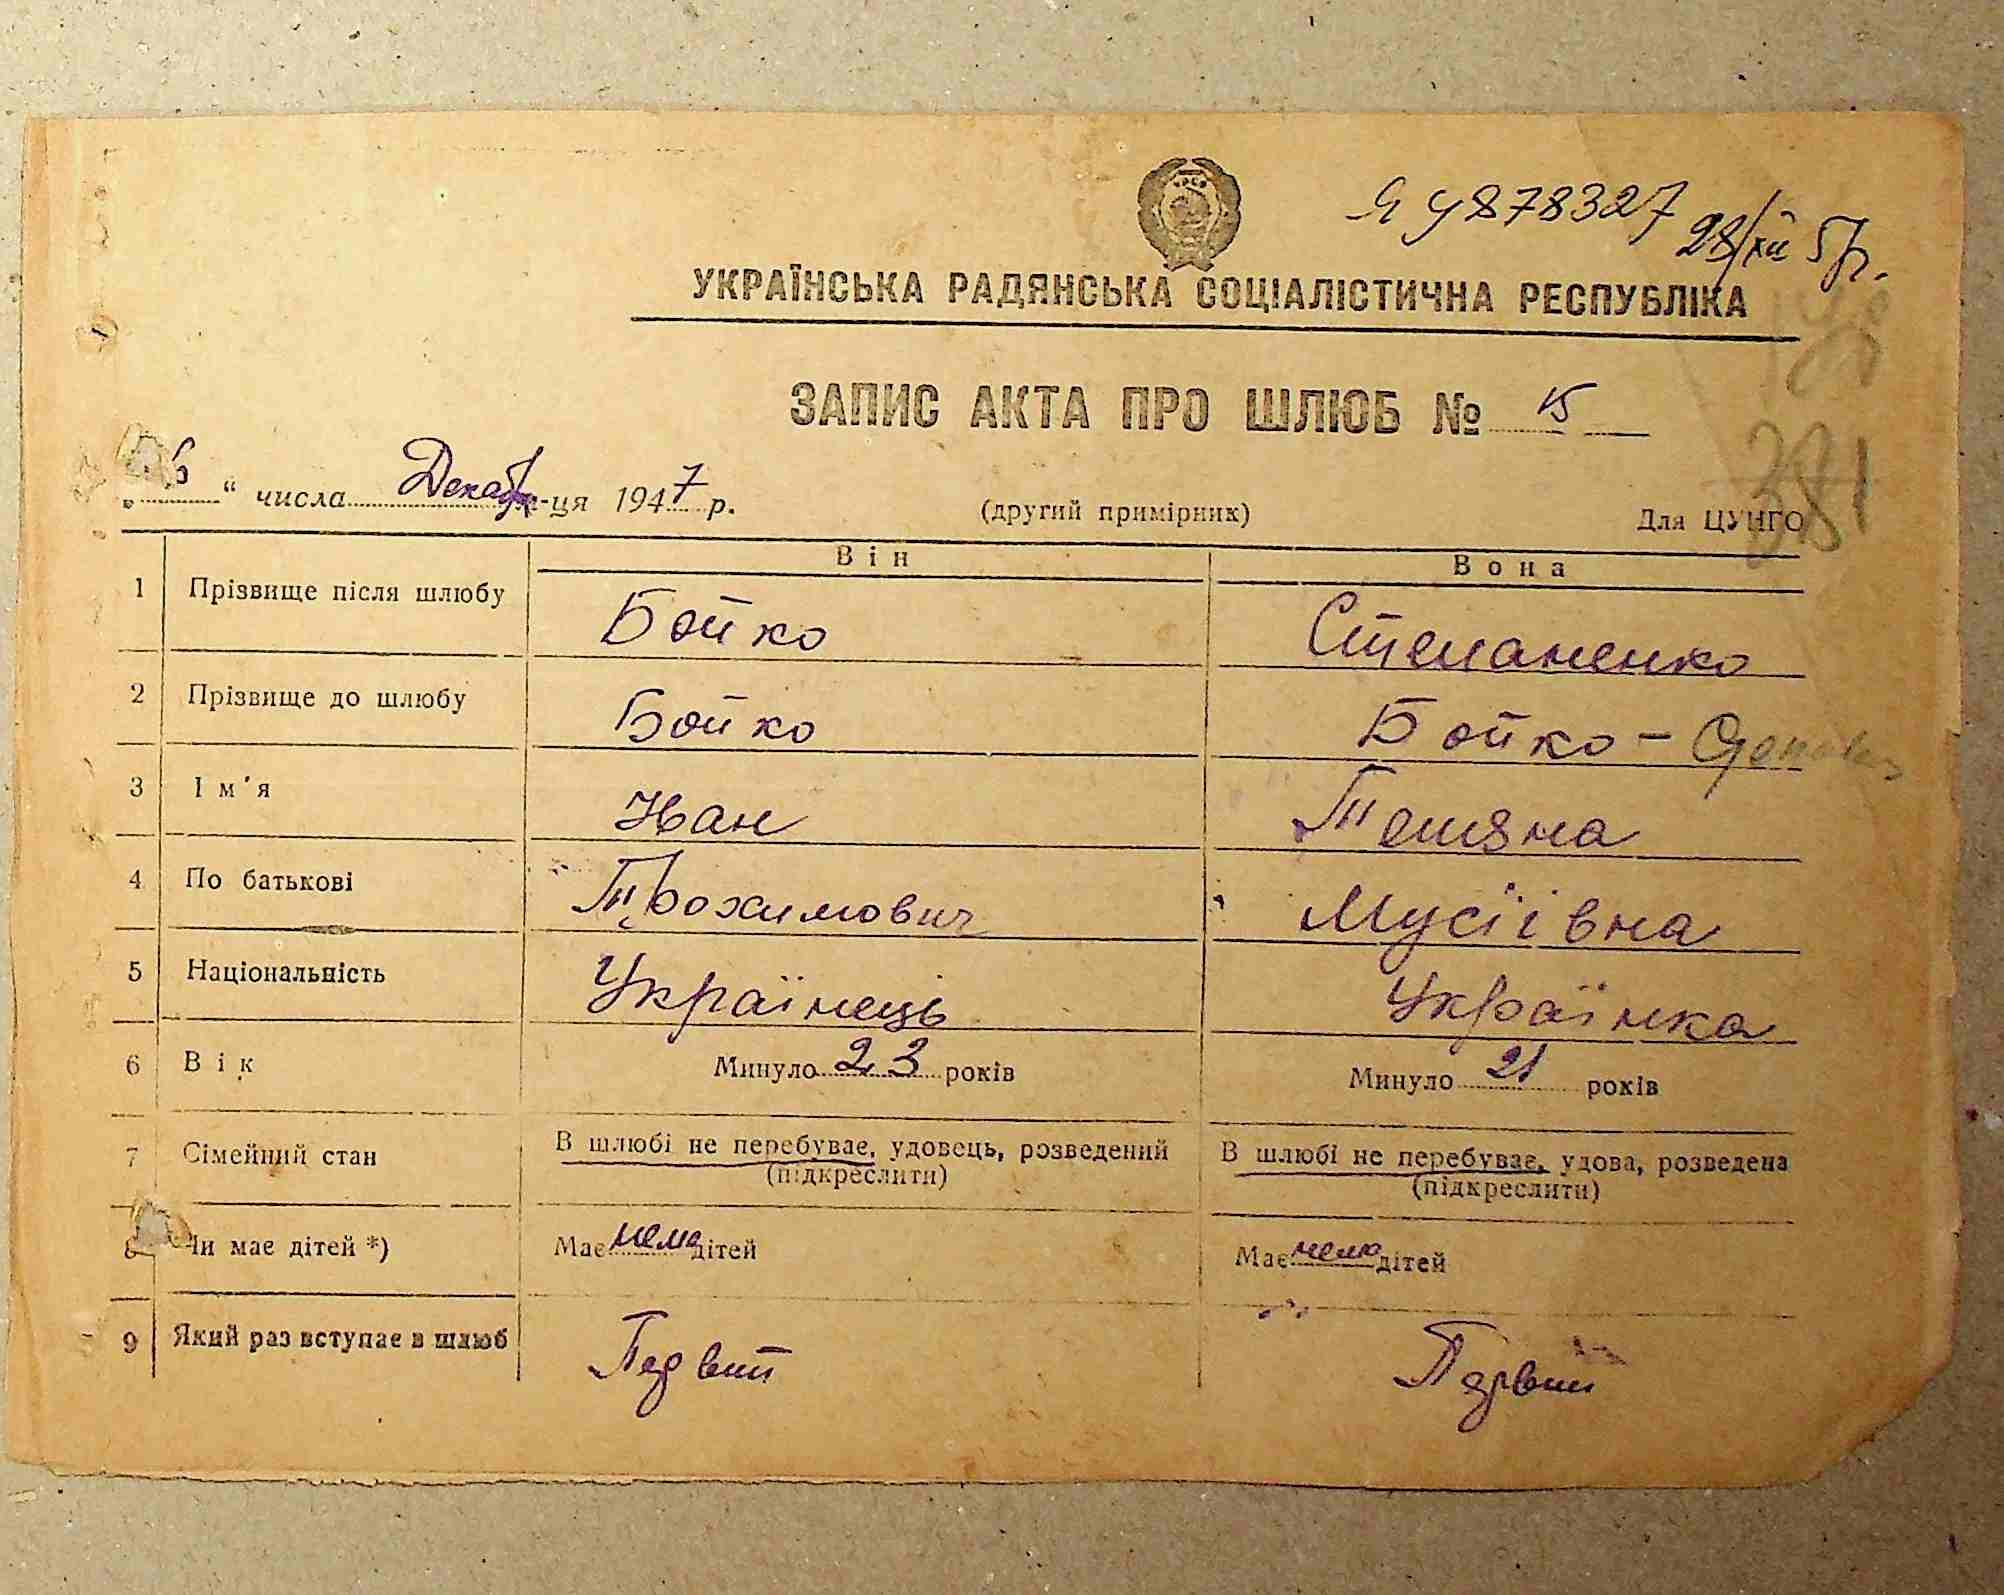 ЯУ 878327 28/XII 57г.
УКРАЇНСЬКА РАДЯНСЬКА СОЦІАЛІСТИЧНА РЕСПУБЛІКА
ЗАПИС АКТА ПРО ШЛЮБ № 15
381
„ 6 “ числа Декабр-ця 1947 р. (другий примірник) Для ЦУНГО
Він Вона
1 Прізвище після шлюбу Бойко Степаненко
2 Прізвище до шлюбу Бойко Бойко –
3 Ім'я Иван Тетяна
4 По батькові Трохимович Мусіївна
5 Національність Українець Українка
6 Вік Минуло 23 років Минуло 21 років
7 Сімейний стан В шлюбі не перебуває, удовець, розведений В шлюбі не перебуває, удова, розведена
(підкреслити) (підкреслити)
8 Чи має дітей *) Має нема дітей Має нема дітей
9 Який раз вступає в шлюб Первий Первий